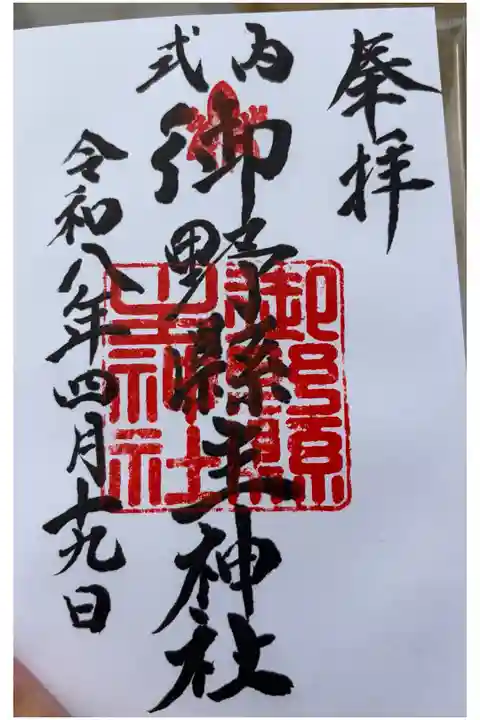 奉拝
式内
御野縣主神社
令和八年四月十九日
御野縣主神社